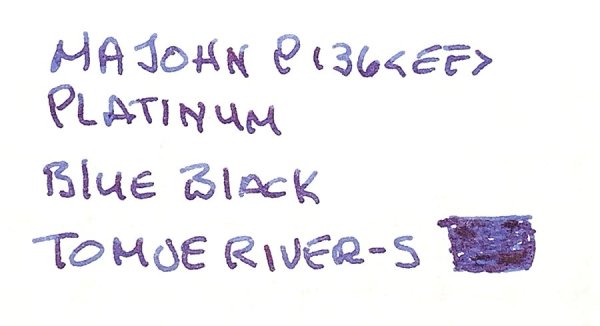 MAJOHN P136<EF>
PLATINUM
BLUE BLACK
TOMOE RIVER-S